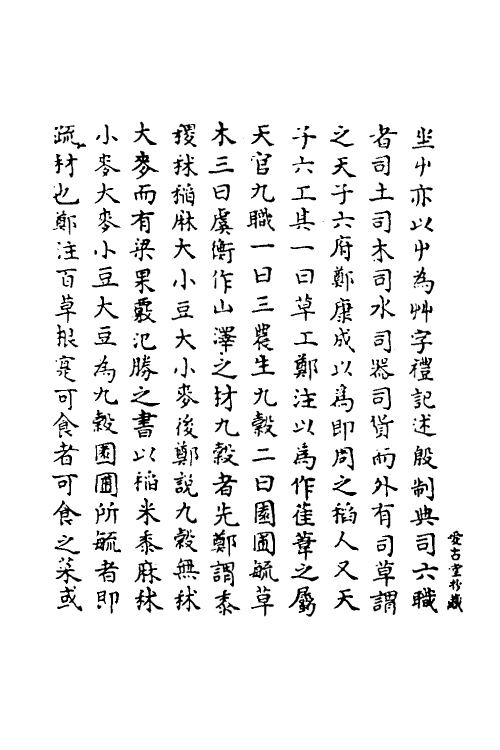 坐屮亦以屮為艸字禮記述殷制典司六職
者司土司木司水司器司貨而外有司草謂
之天子六府鄭康成以為即周之稻人又天
子六工其一曰草工鄭注以為作萑葦之屬
天官九職一曰三農生九穀二曰園圃毓草
木三曰虞衡作山澤之材九穀者先鄭謂黍
稷秫稻麻大小豆大小麥後鄭說九穀無秫
大麥而有梁苽氾勝之書以稻米黍麻秫
小麥大麥小豆大豆為九穀園圃所毓者即
疏材也鄭注百草根實可食者可食之菜或
愛古堂抄藏